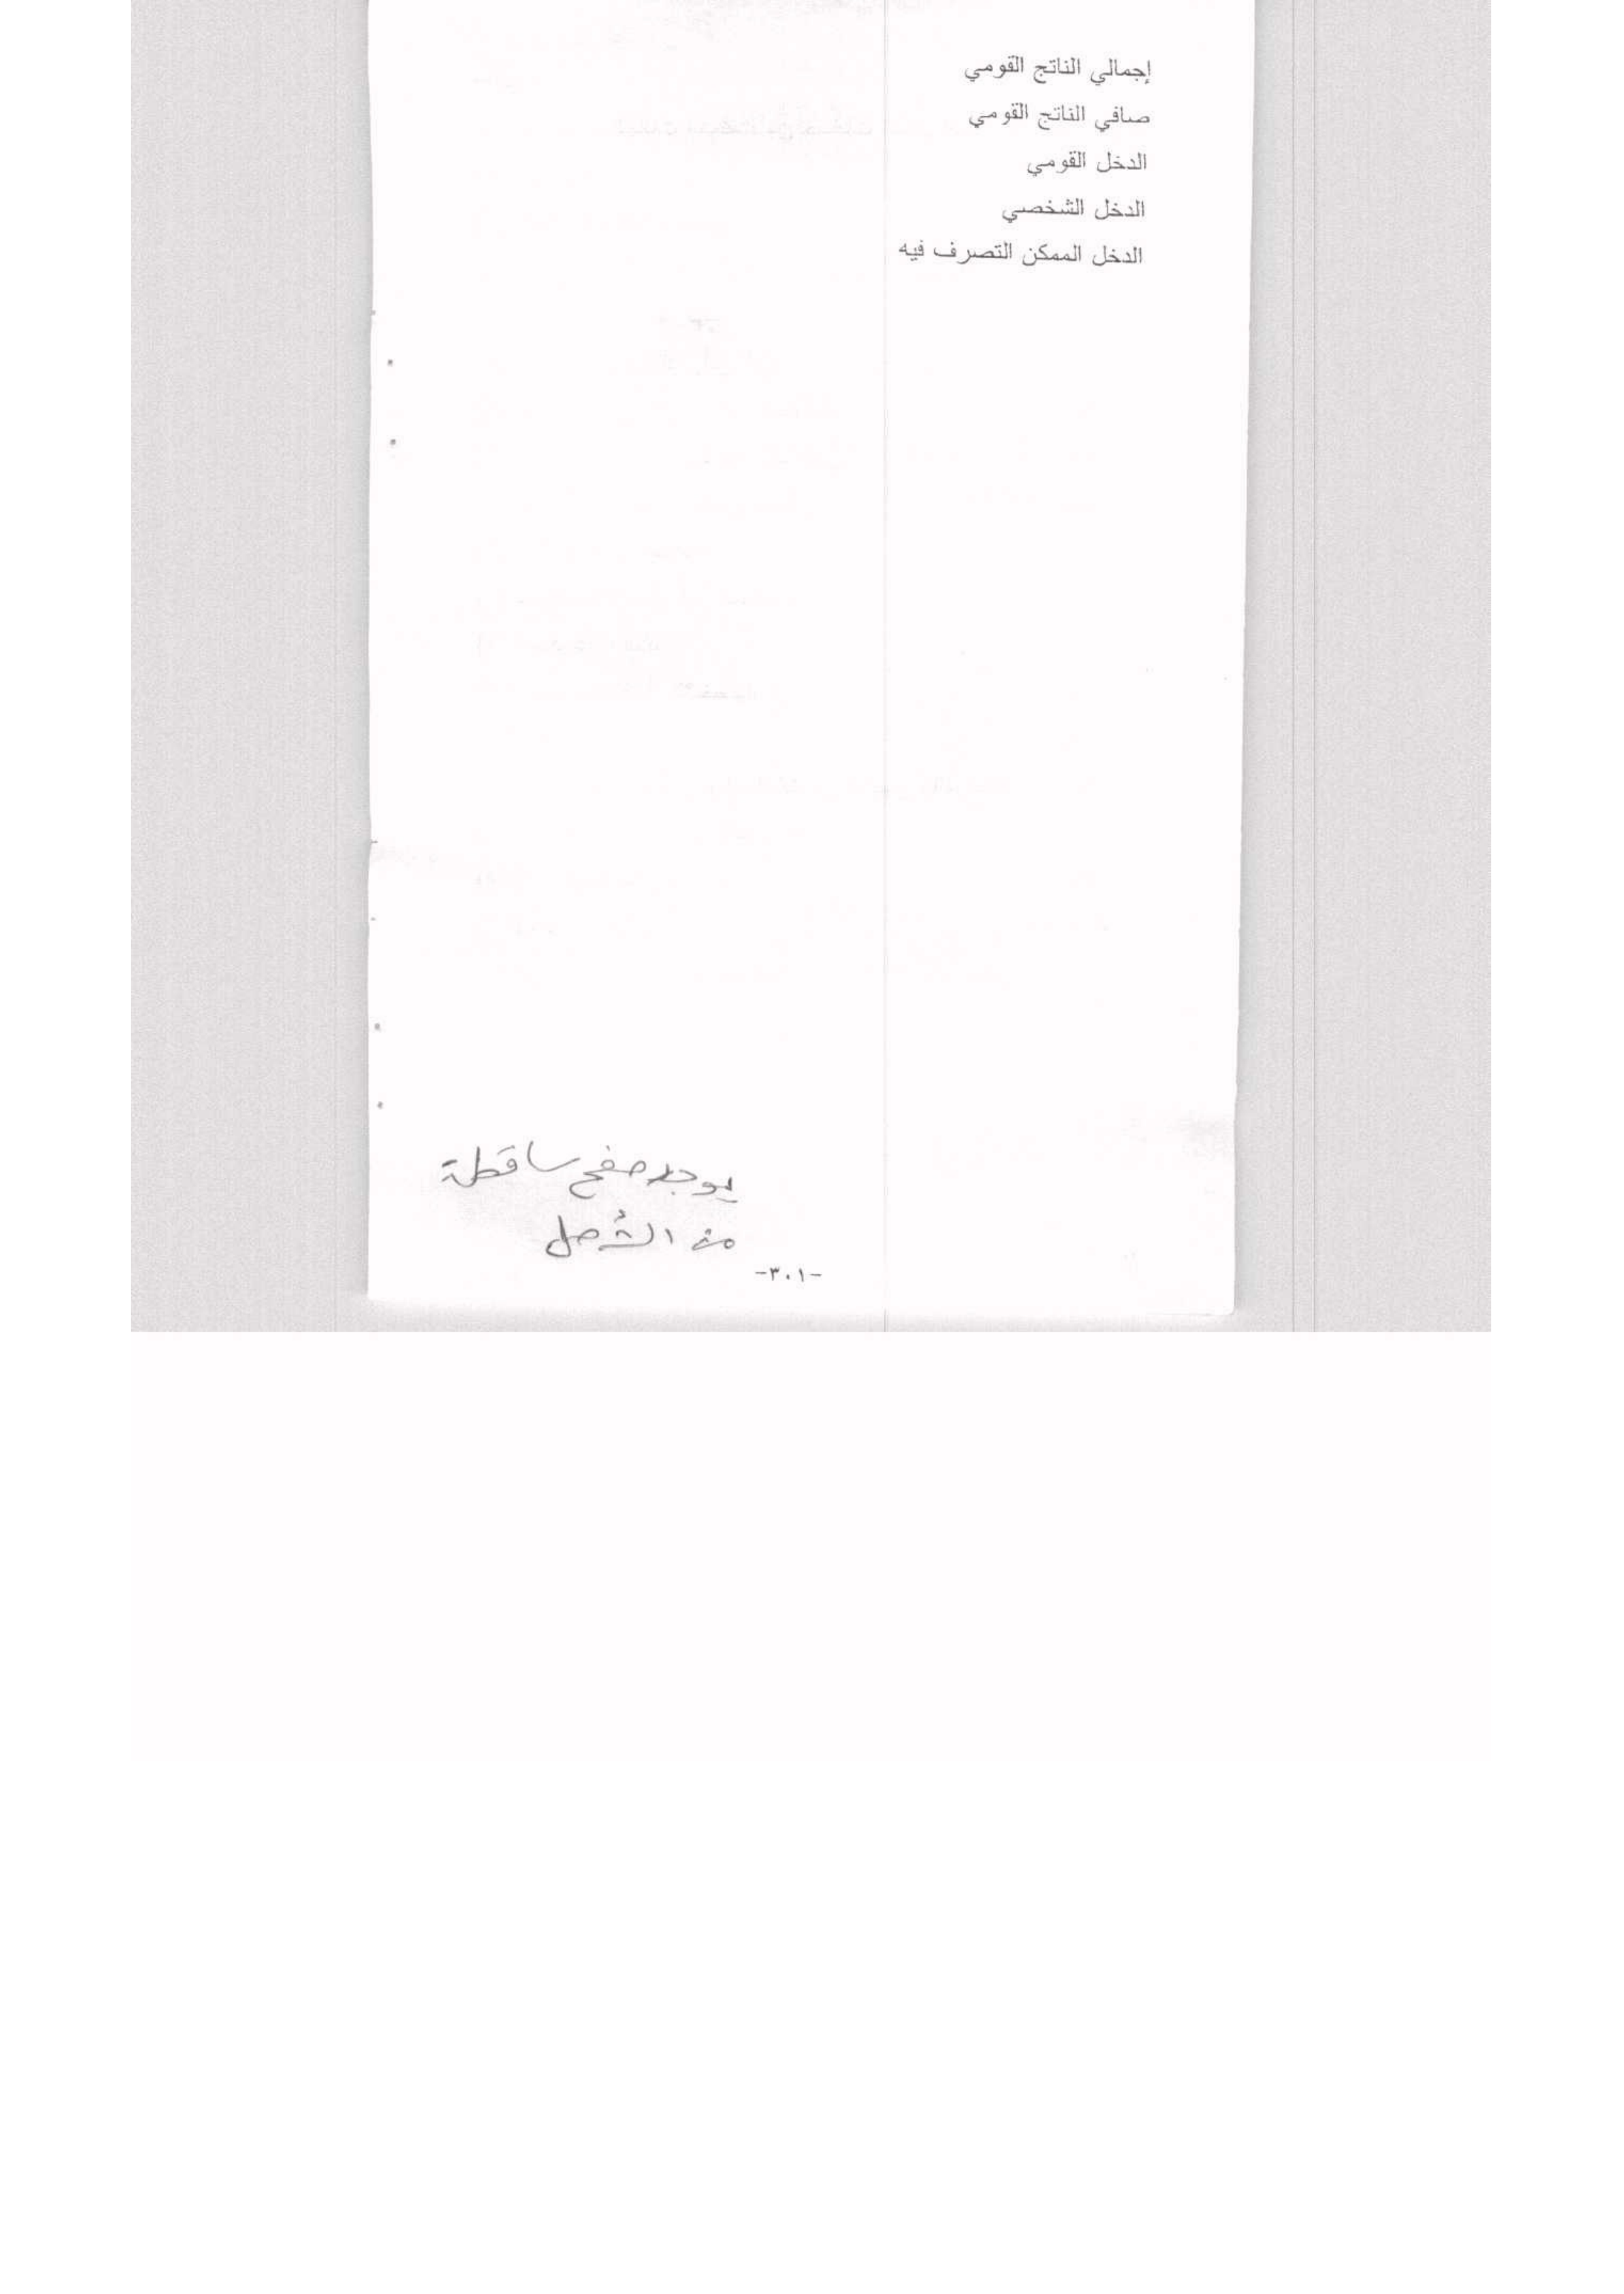 إجمالي الناتج القومي
صافي الناتج القومي
الدخل القومي
الدخل الشخصي
الدخل الممكن التصرف فيه
يوجد صفح ساقطة
من الأصل
-٣٠١-